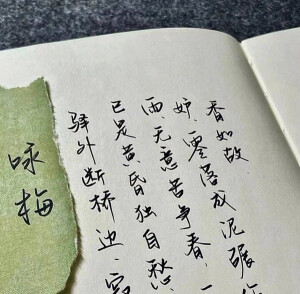 咏梅
驿外断桥边，
已是黄昏独自愁
雨，无意苦争春，一
妒，零落成泥碾作
香如故